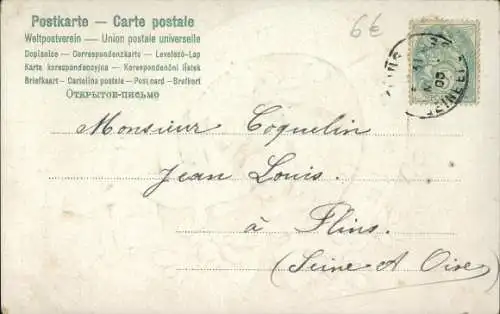 Postkarte — Carte postale
Weltpostverein — Union postale universelle
Dopisnice — Correspondenzkarte — Levelező-Lap
Karta korespondencyjna — Korespondenční lístek
Briefkaart — Cartolina postale — Postcard — Brefkort
Открытое-письмо
6€
Monsieur Coquelin
Jean Louis.
à Flins.
(Seine et Oise)